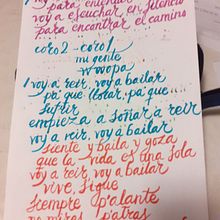 para entender
voy a escuchar en silencio
para encontrar el camino
coro 2 - coro 1
mi gente
wooopa
voy a reir, voy a bailar
pa' que llorar, pa' que
sufrir
empieza a soñar a reir
voy a reir, voy a bailar
siente y baila y goza
que la vida es una sola
voy a reir, voy a bailar
vive, sigue
siempre p'alante
no mires p'atras